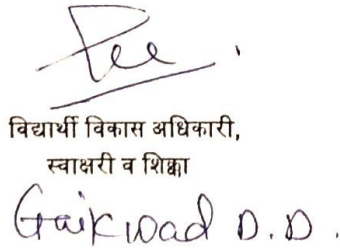 विद्यार्थी विकास अधिकारी,
स्वाक्षरी व शिक्का
Gaikwad D.D.